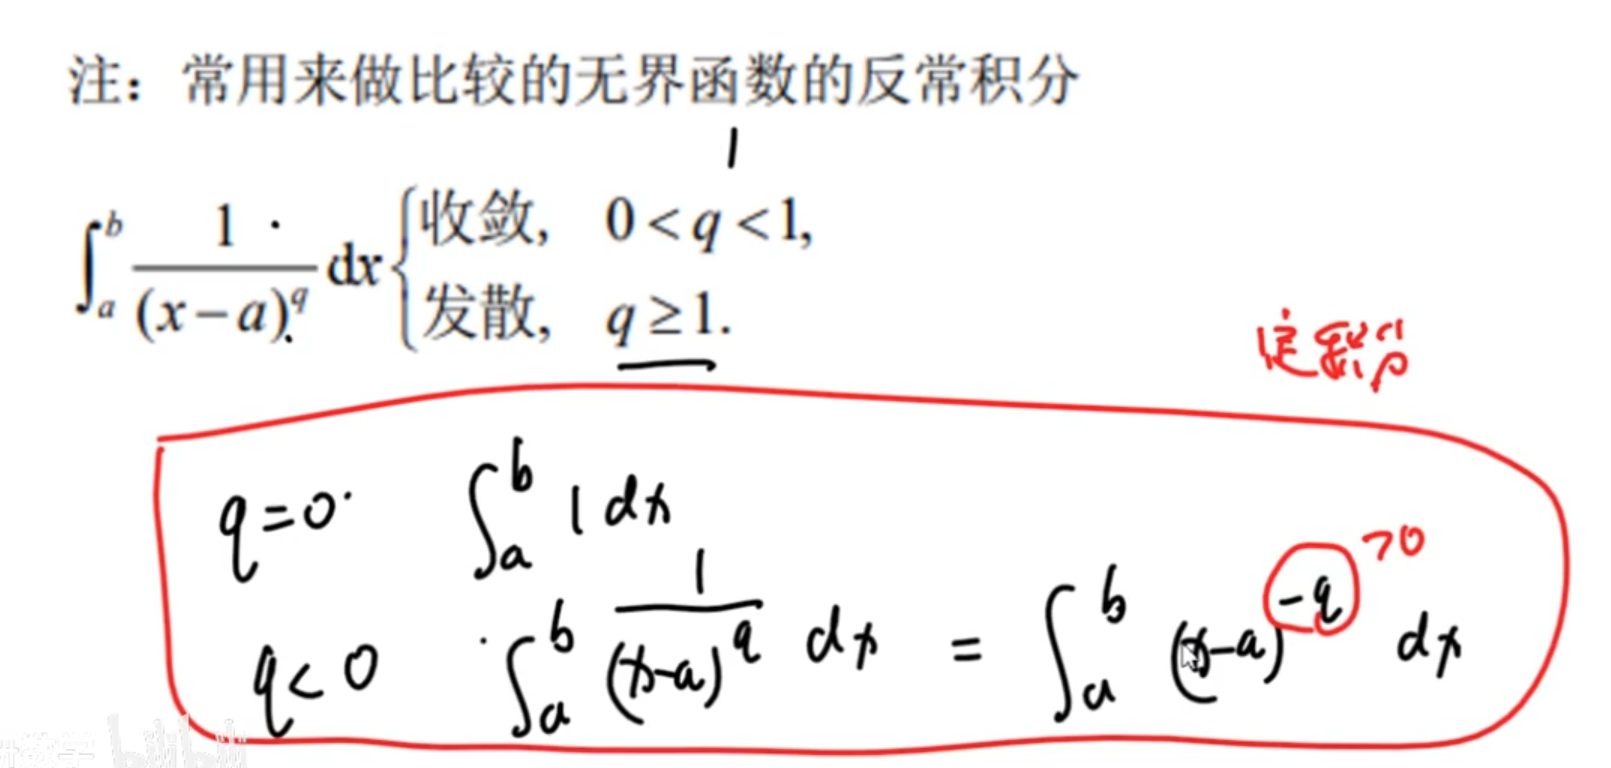 注：常用来做比较的无界函数的反常积分
1
∫_a^b 1/(x−a)^q dx { 收敛, 0<q<1,
发散, q≥1.
定积分
q=0 ∫_a^b 1dx
>0
q<0 ∫_a^b 1/(x-a)^q dx = ∫_a^b (x-a)^{-q} dx
研数学 bilibili